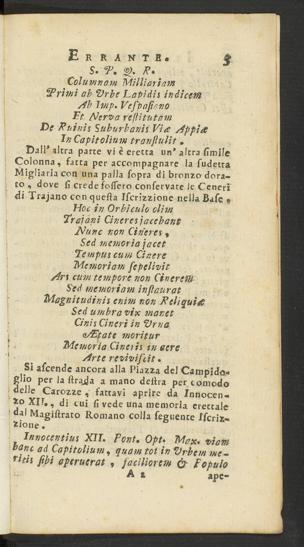 ERRANTE. 3
S. P. Q. R.
Columnam Milliariam
Primi ab Vrbe Lapidis indicem
Ab Imp. Veſpaſiano
Et Nerva reſtitutam
De Ruinis Suburbanis Viæ Appiæ
In Capitolium tranſtulit.
Dall' altra parte vi è eretta un' altra ſimile
Colonna, fatta per accompagnare la ſudetta
Migliaria con una palla ſopra di bronzo dora-
to, dove ſi crede foſſero conſervate le Ceneri
di Trajano con queſta Iſcrizzione nella Baſe.
Hoc in Orbiculo olim
Trajani Cineres jacebant
Nunc non Cineres,
Sed memoria jacet
Tempus cum Cinere
Memoriam ſepelivit
Ars cum tempore non Cinerem
Sed memoriam inſtaurat
Magnitudinis enim non Reliquiæ
Sed umbra vix manet
Cinis Cineri in Vrna
Ætate moritur
Memoria Cineris in aere
Arte reviviſcit.
Si aſcende ancora alla Piazza del Campido-
glio per la ſtrada a mano deſtra per comodo
delle Carozze, fattavi aprire da Innocen-
zo XII., di cui ſi vede una memoria erettale
dal Magiſtrato Romano colla ſeguente Iſcriz-
zione.
Innocentius XII. Pont. Opt. Max. viam
hanc ad Capitolium, quam tot in Vrbem me-
ritis ſibi aperuerat, faciliorem & Populo
A 2 ape-